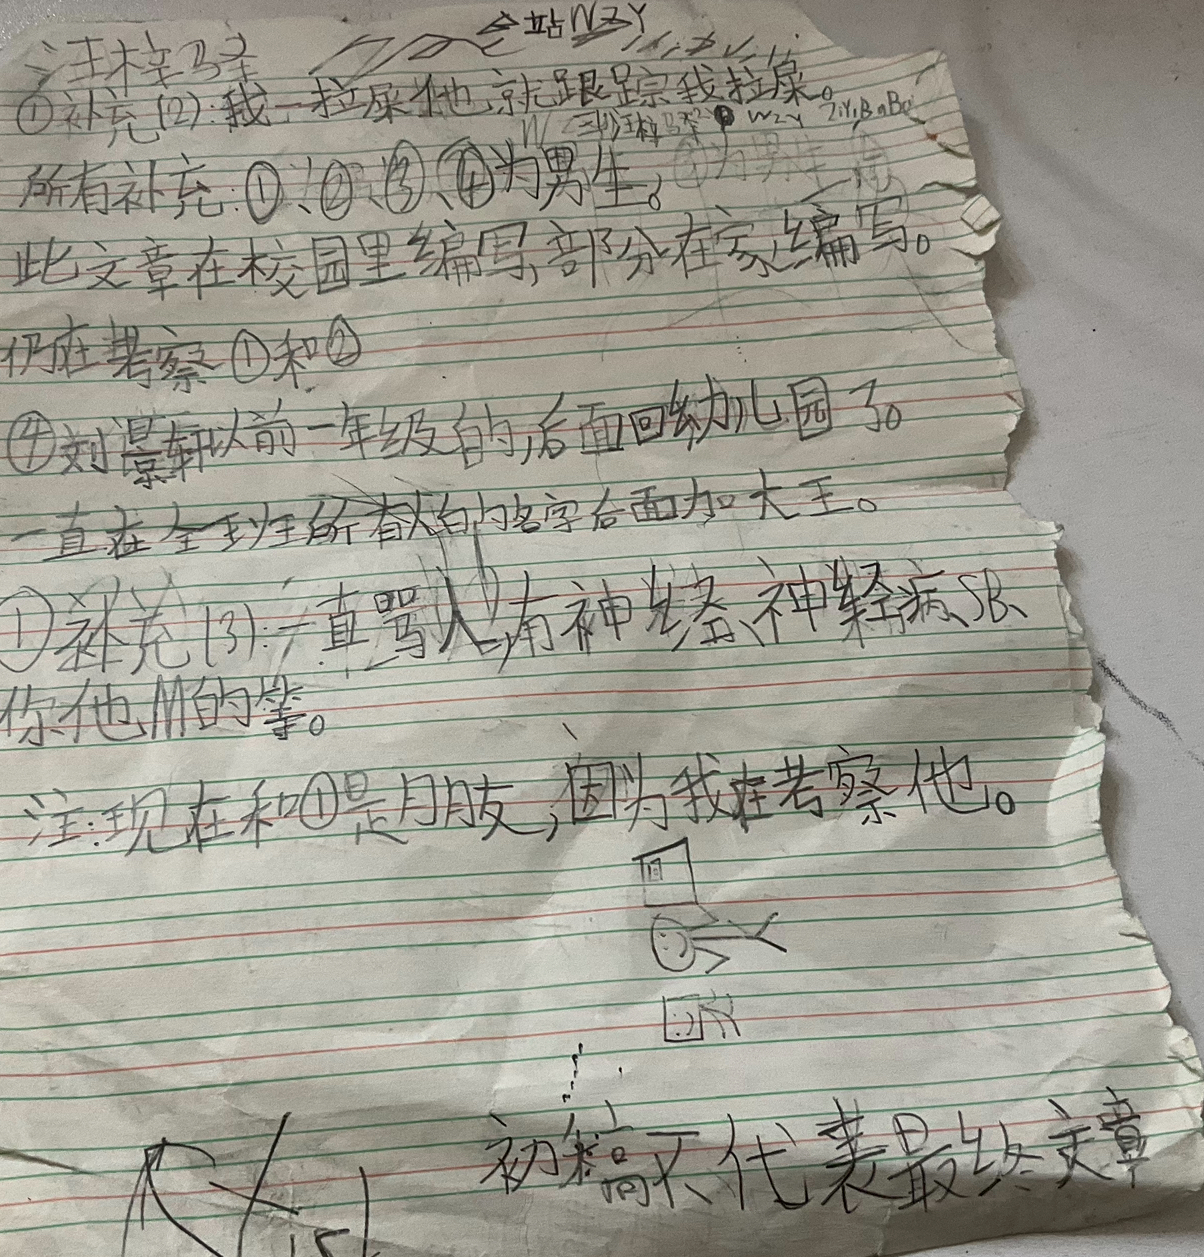 站WZY
汪梓驿
①补充(2):我一拉屎他就跟踪我拉屎。
WZY
所有补充:①、②、③、④为男生。
此文章在校园里编写,部分在家编写。
仍在考察①和②
④刘景轩以前一年级的,后面回幼儿园了。
一直在全班所有人的名字后面加大王。
①补充(3):一直骂人,有神经、神经病、SB、
你他M的等。
注:现在和①是朋友,因为我在考察他。
初稿不代表最终文章